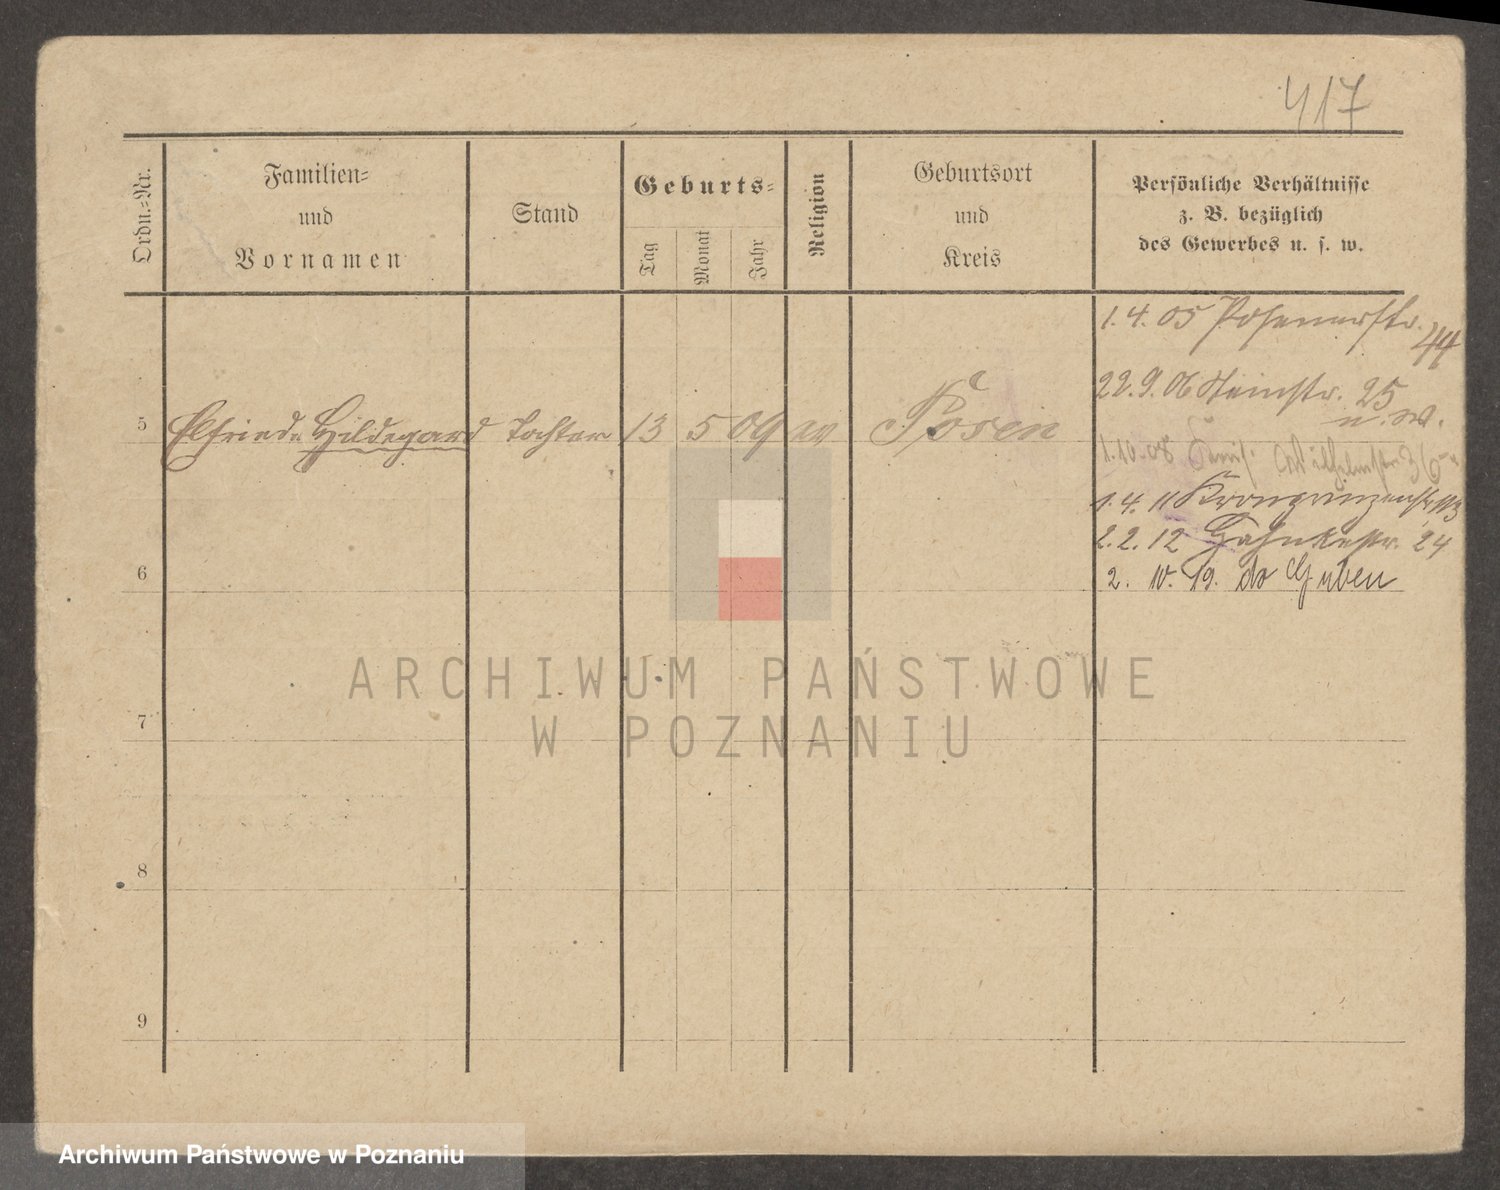 417
Ordn.-Nr.
Familien-
und
Vornamen
Stand
Geburts-
Tag
Monat
Jahr
Religion
Geburtsort
und
Kreis
Persönliche Verhältnisse
z. B. bezüglich
des Gewerbes u. s. w.
1. 4. 05 Posenerstr.
44
22. 9. 06 Steinstr. 25
u. W.
5 Elfriede Hildegard Tochter 13 5 09 ev Posen
1. 10. 08 Wilhelmstr 36
1. 4. 11 Kronprinzenstr 113
2. 2. 12 Hahnkestr. 24
6
2. 10. 19. do Guben
ARCHIWUM PAŃSTWOWE
W POZNANIU
7
8
9
Archiwum Państwowe w Poznaniu